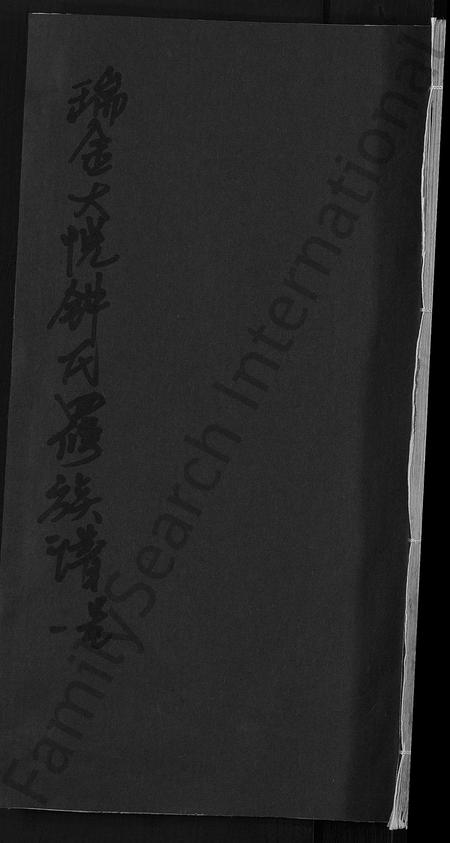 瑞金大氏四修族譜一卷
FamilySearch International